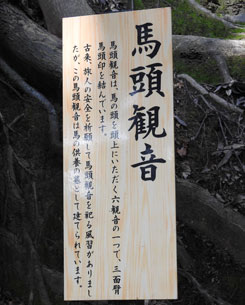 馬頭観音
馬頭観音は、馬の頭を頭上にいただく六観音の一つで、三面八臂
馬頭印を結んでいます。
古来、旅人の安全を祈願して馬頭観音を祀る風習がありまし
たが、この馬頭観音は馬の供養の墓として建てられています。